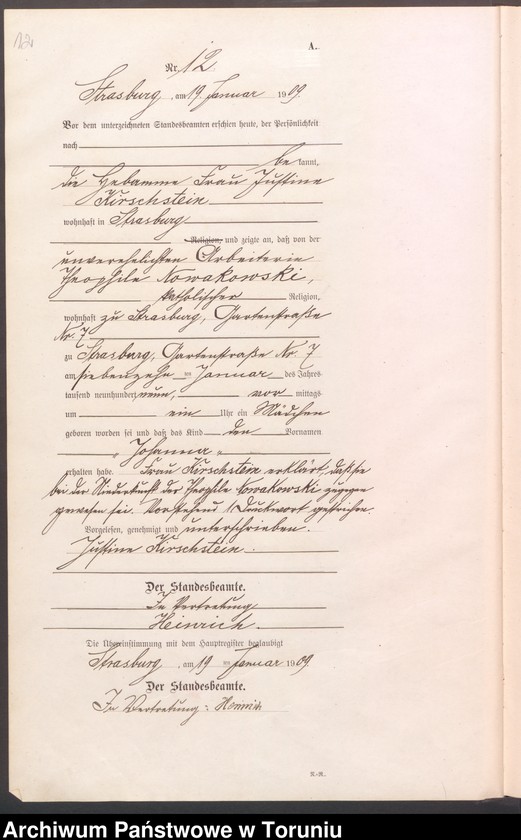 12.
A.
Nr. 12.
Strasburg, am 19. Januar 1909.
Vor dem unterzeichneten Standesbeamten erschien heute, der Persönlichkeit
nach
be kannt,
die Hebamme Frau Justine
Kirschstein
wohnhaft in Strasburg
Religion, und zeigte an, daß von der
unverehelichten Arbeiterin
Theophile Nowakowski,
katholischer Religion,
wohnhaft zu Strasburg, Gartenstraße
Nr. 7
zu Strasburg, Gartenstraße Nr. 7
am siebenzehn ten Januar des Jahres
tausend neunhundert neun, vor mittags
um ein Uhr ein Mädchen
geboren worden sei und daß das Kind den Vornamen
Johanna
erhalten habe. Frau Kirschstein erklärt, daß sie
bei der Niederkunft der Theophile Nowakowski zugegen
gewesen sei. Vorstehend 1 Druckwort gestrichen.
Vorgelesen, genehmigt und unterschrieben.
Justine Kirschstein.
Der Standesbeamte.
In Vertretung
Heinrich.
Die Übereinstimmung mit dem Hauptregister beglaubigt
Strasburg, am 19 ten Januar 1909.
Der Standesbeamte.
In Vertretung:
R.-R.
Archiwum Państwowe w Toruniu